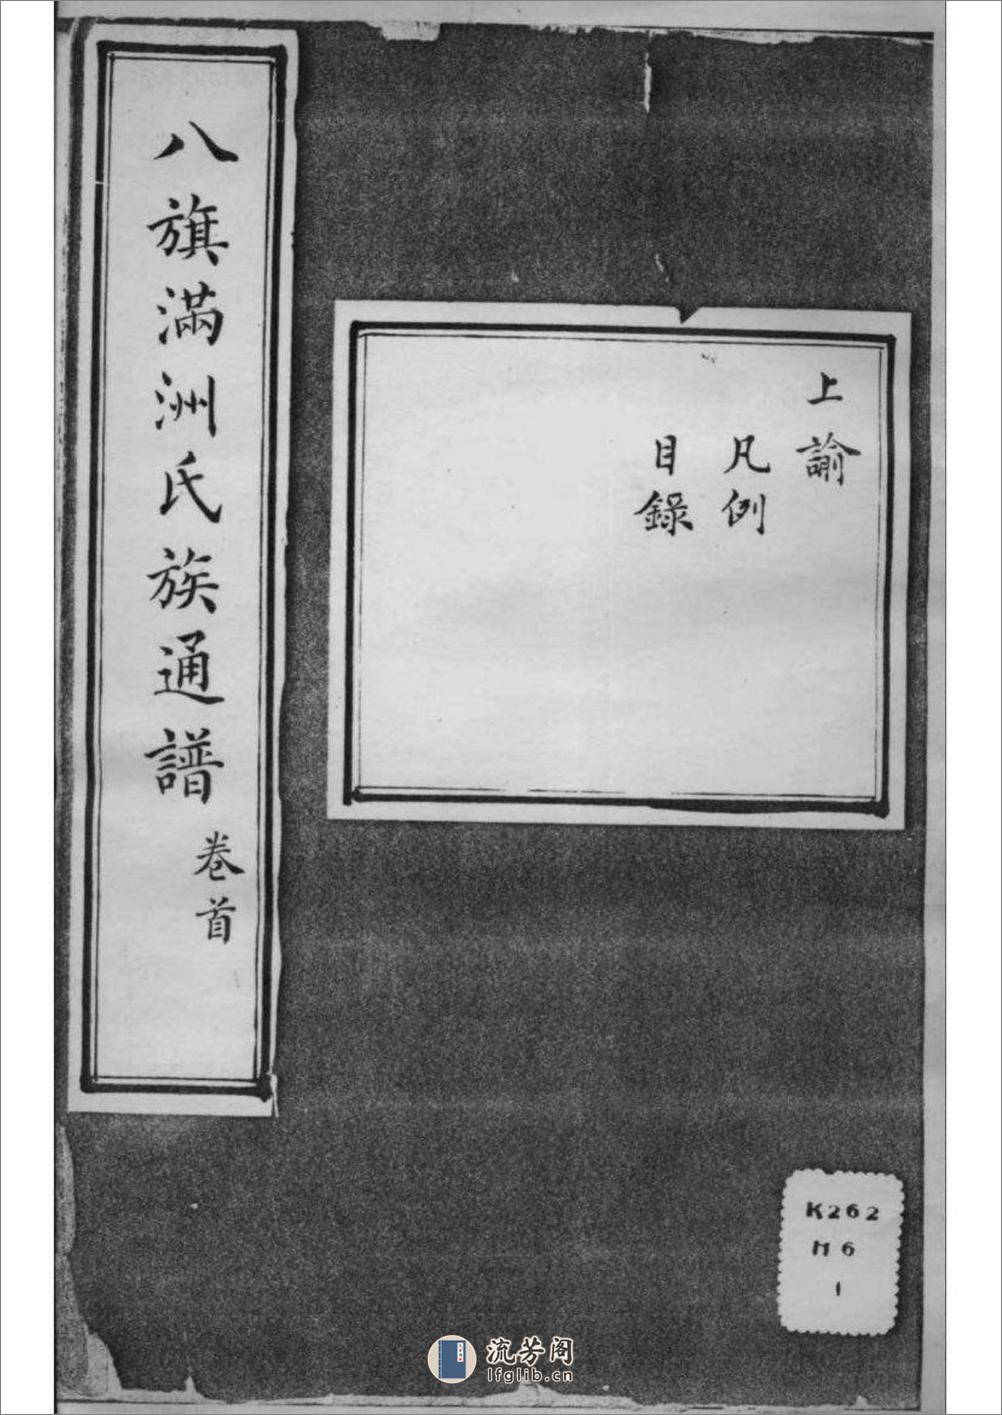 八旗滿洲氏族通譜
卷首
上諭
凡例
目錄
K262
M6
1
流芳阁
lfglib.cn